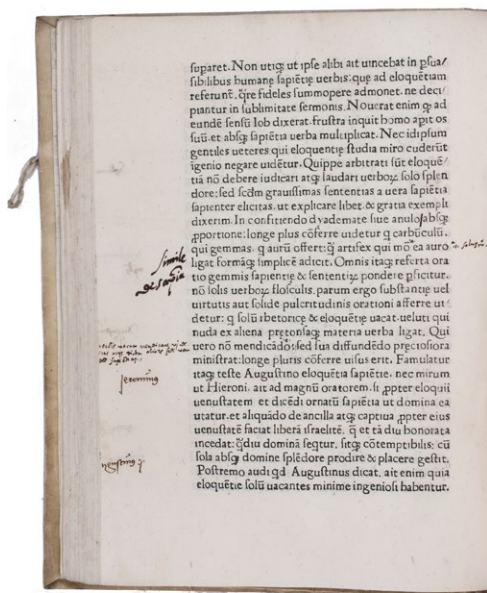 suparet. Non utiq; ut ipse alibi ait uincebat in psua/
sibilibus humanę sapiētię uerbis: quę ad eloquētiam
referunt, q̄re fideles summopere admonet, ne deci/
piantur in sublimitate sermonis. Nouerat enim q
eundē sensū Iob dixerat. frustra inquit homo apit os
suū, et absq; sapiētia uerba multiplicat. Nec idipsum
gentiles ueteres qui eloquentię studia miro cuderūt
igenio negare uidētur. Quippe arbitrati sūt eloquē/
tiā nō debere iudicari atq; laudari uerboꝝ solo splen
dore: sed scdm grauissimas sententias a uera sapiētia
sapienter elicitas. ut explicare libet. & gratia exempli
dixerim. In confitiendo dyademate siue anulo: absq;
pportione: longe plus cōferre uidetur q carbūculū.
qui gemmas. q aurū offert: q̄ artifex qui mo ea auro
ligat formāq; simplicē adicit. Omnis itaq; referta ora
tio gemmis sapientię & sententiꝝ pondere pficitur.
nō solis uerboꝝ flosculis. parum ergo substantię uel
uirtutis aut solidę pulcritudinis orationi afferre ui/
detur: q solū rhetoricę & eloquētię uacat. ueluti qui
nuda ex aliena pretiosaq; materia uerba ligat. Qui
uero nō mendicādo: sed sua diffundēdo preciosiora
ministrat: longe pluris cōferre uisus erit. Famulatur
itaq; teste Augustino eloquētia sapiētię. nec mirum
ut Hieroni. ait ad magnū oratorem. si ppter eloquii
uenustatem et dicēdi ornatū sapiētia ut domina ea
utatur. et aliquādo de ancilla atq; captiua ppter eius
uenustatē faciat liberā israelitē. q̄ et tā diu bonorata
incedat: q̄diu dominā seqtur. sitq; cōtemptibilis: cū
sola absq; domine splēdore prodire & placere gestit.
Postremo audi qd Augustinus dicat. ait enim quia
eloquētię solū uacantes minime ingeniosi habentur.
simile
Jeronimus